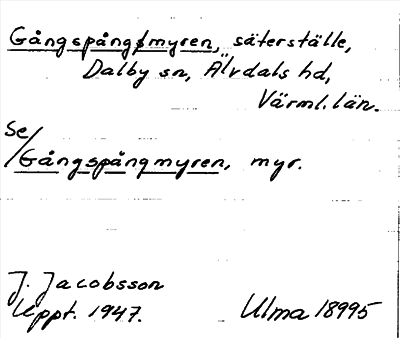 Gångspångmyren, säterställe,
Dalby sn, Älvdals hd,
Värml. län.
Se/
Gångspångmyren, myr.
J. Jacobsson
Uppt. 1947.
Ulma 18995